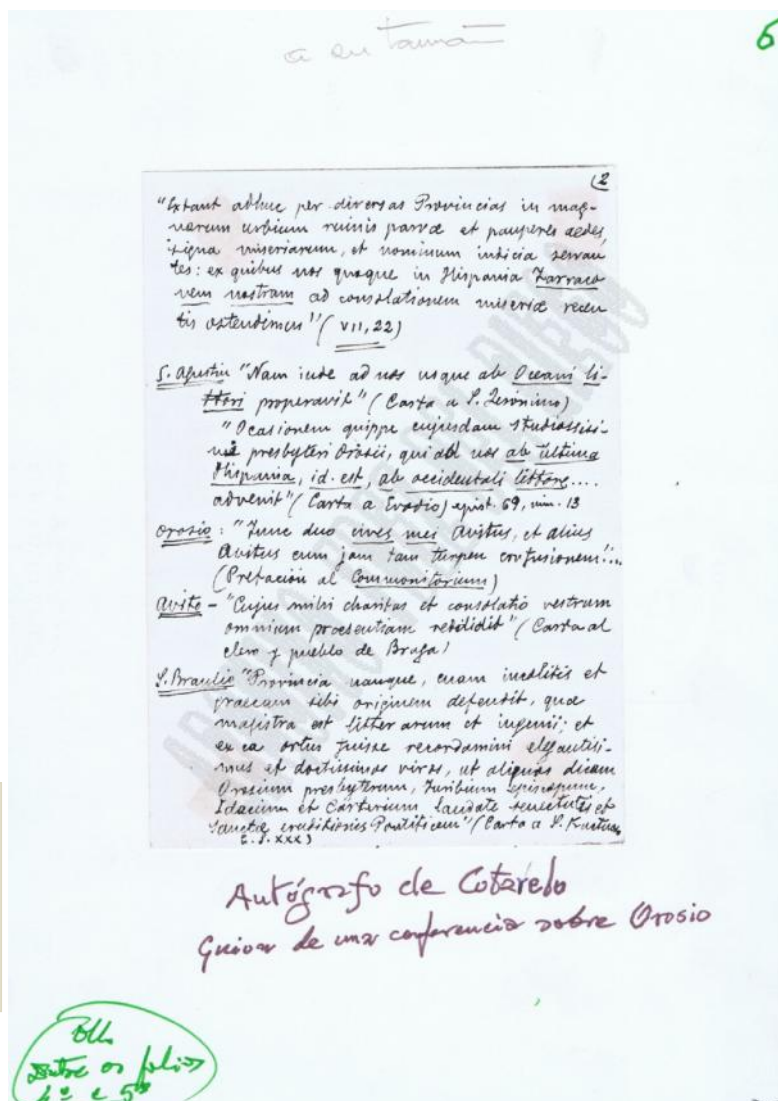 a su tamaño
6
(2
"Extant adhuc per diversas Provincias in mag-
narum urbium ruinis parvæ et pauperes aedes,
signa miseriarum, et nominum indicia servan
tes: ex quibus nos quoque in Hispania Tarraco
nem nostram ad consolationem miseriæ recen
tis ostendimus" (VII, 22)
S. Agustin "Nam inde ad nos usque ab Oceani li-
ttori properavit" (Carta a S. Jeronimo)
"Ocasionem quippe cujusdam studiossisi-
mi presbyteri Orosii, qui ad nos ab ultima
Hispania, id. est, ab occidentali littore....
advenit" (Carta a Evodio) epist. 69, num. 13
Orosio: "Tunc duo cives mei Avitus, et alius
Avitus cum jam tam turpem confusionem!...
(Prefación al Commonitorium)
Avito - "Cujus mihi charitas et consolatio vestrum
omnium praesentiam redidit" (Carta al
clero y pueblo de Braga)
S. Braulio "Provincia namque, quam incolitis et
graecam sibi originem defendit, quæ
magistra est litterarum et ingenii; et
ex ea ortus fuisse recordamini elegantisi-
mus et doctissimos viros, ut aliquos dicam
Orosium presbyterum, Turibium episcopum,
Idacium et Carterium laudate senectutis et
sanctæ eruditionis Pontificem" (Carta a S.
E. S. XXX)
Autógrafo de Cotarelo
Guion de una conferencia sobre Orosio
entre os folios
4º e 5º